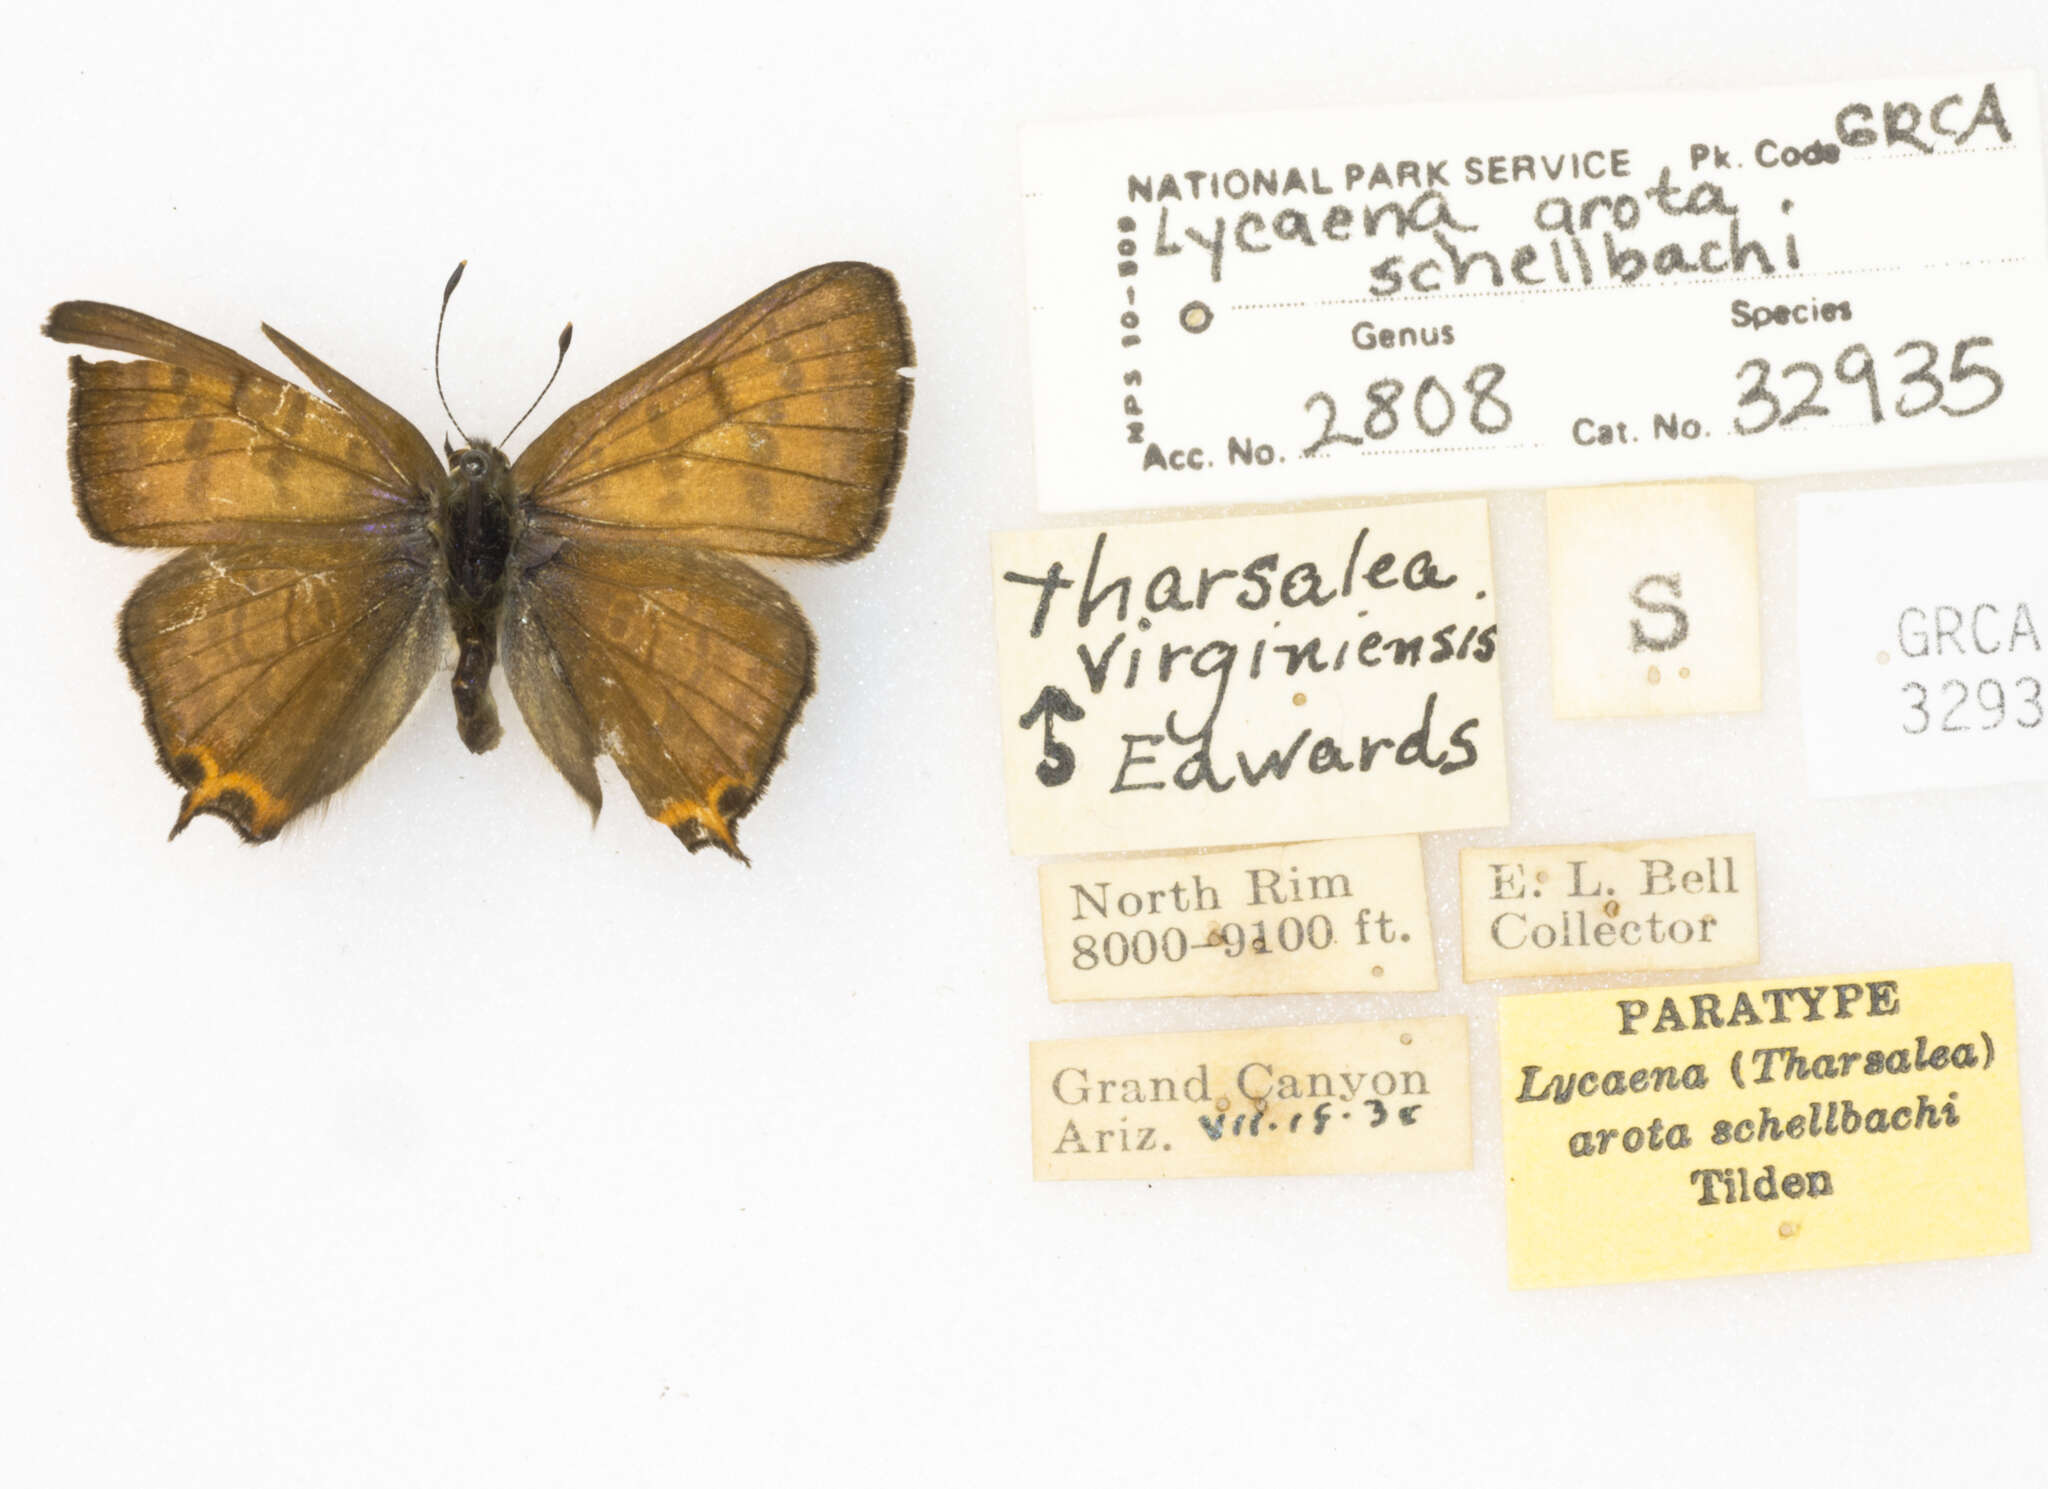 NATIONAL PARK SERVICE Pk. Code GRCA
Lycaena arota
schellbachi
NPS 10-509
Genus Species
Acc. No. 2808 Cat. No. 32935
Tharsalea
virginiensis
Edwards
S
GRCA
3293
North Rim
8000–9100 ft.
E. L. Bell
Collector
Grand Canyon
Ariz.
PARATYPE
Lycaena (Tharsalea)
arota schellbachi
Tilden